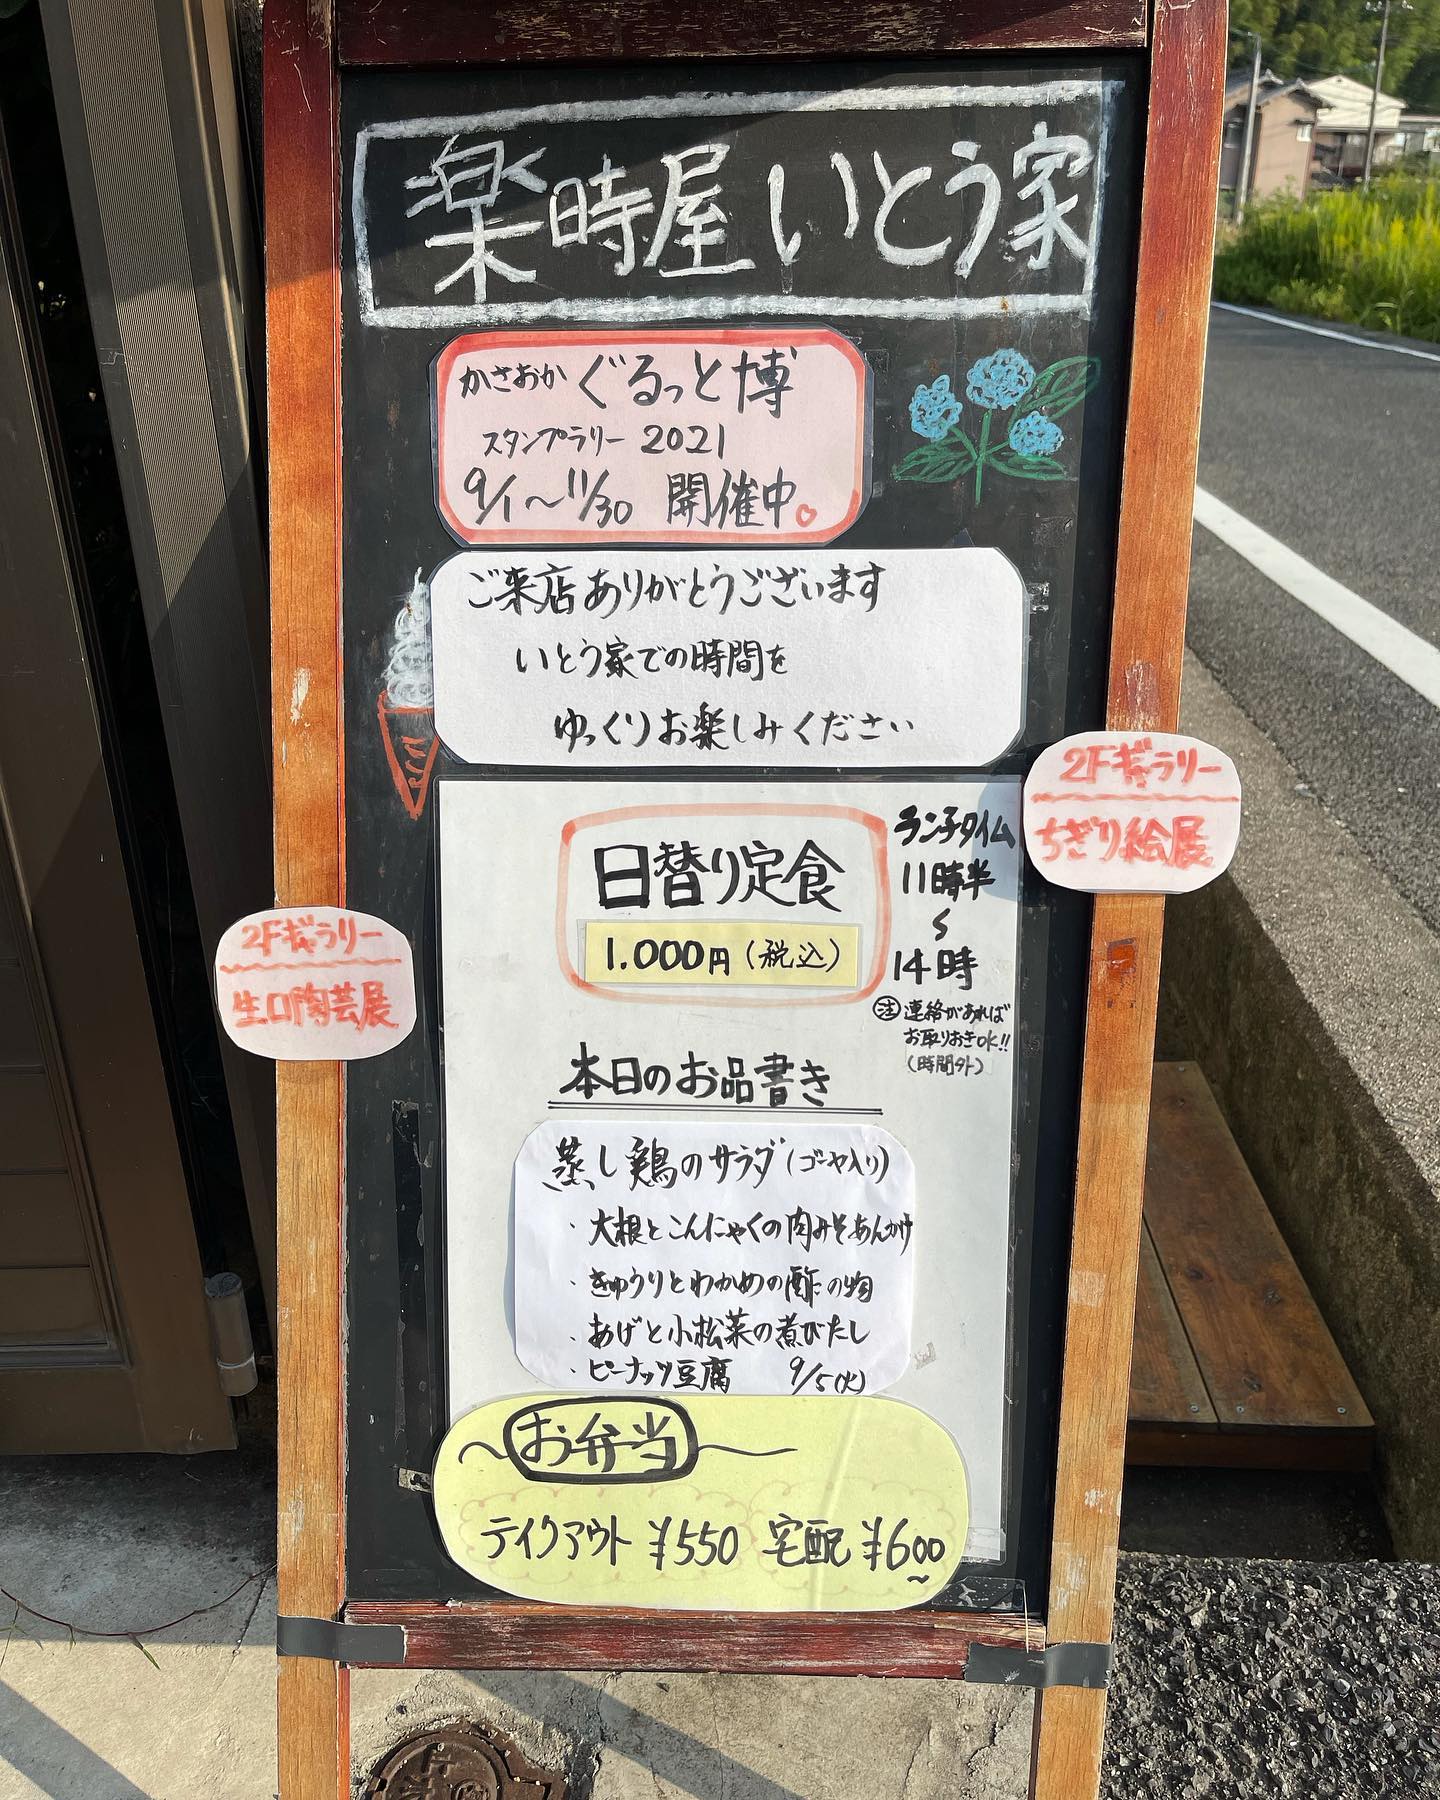 楽時屋 いとう家
かさおか ぐるっと博
スタンプラリー 2021
9/1〜11/30 開催中♡
ご来店ありがとうございます
いとう家での時間を
ゆっくりお楽しみください
2Fギャラリー
ちぎり絵展
2Fギャラリー
生口陶芸展
日替り定食
1.000円(税込)
ランチタイム
11時半
〜
14時
㊟連絡があれば
お取りおきOK!!
(時間外)
本日のお品書き
蒸し鶏のサラダ(ゴーヤ入り)
・大根とこんにゃくの肉みそあんかけ
・きゅうりとわかめの酢の物
・あげと小松菜の煮びたし
・ピーナッツ豆腐 9/5(火)
〜お弁当〜
テイクアウト ¥550 宅配 ¥600〜